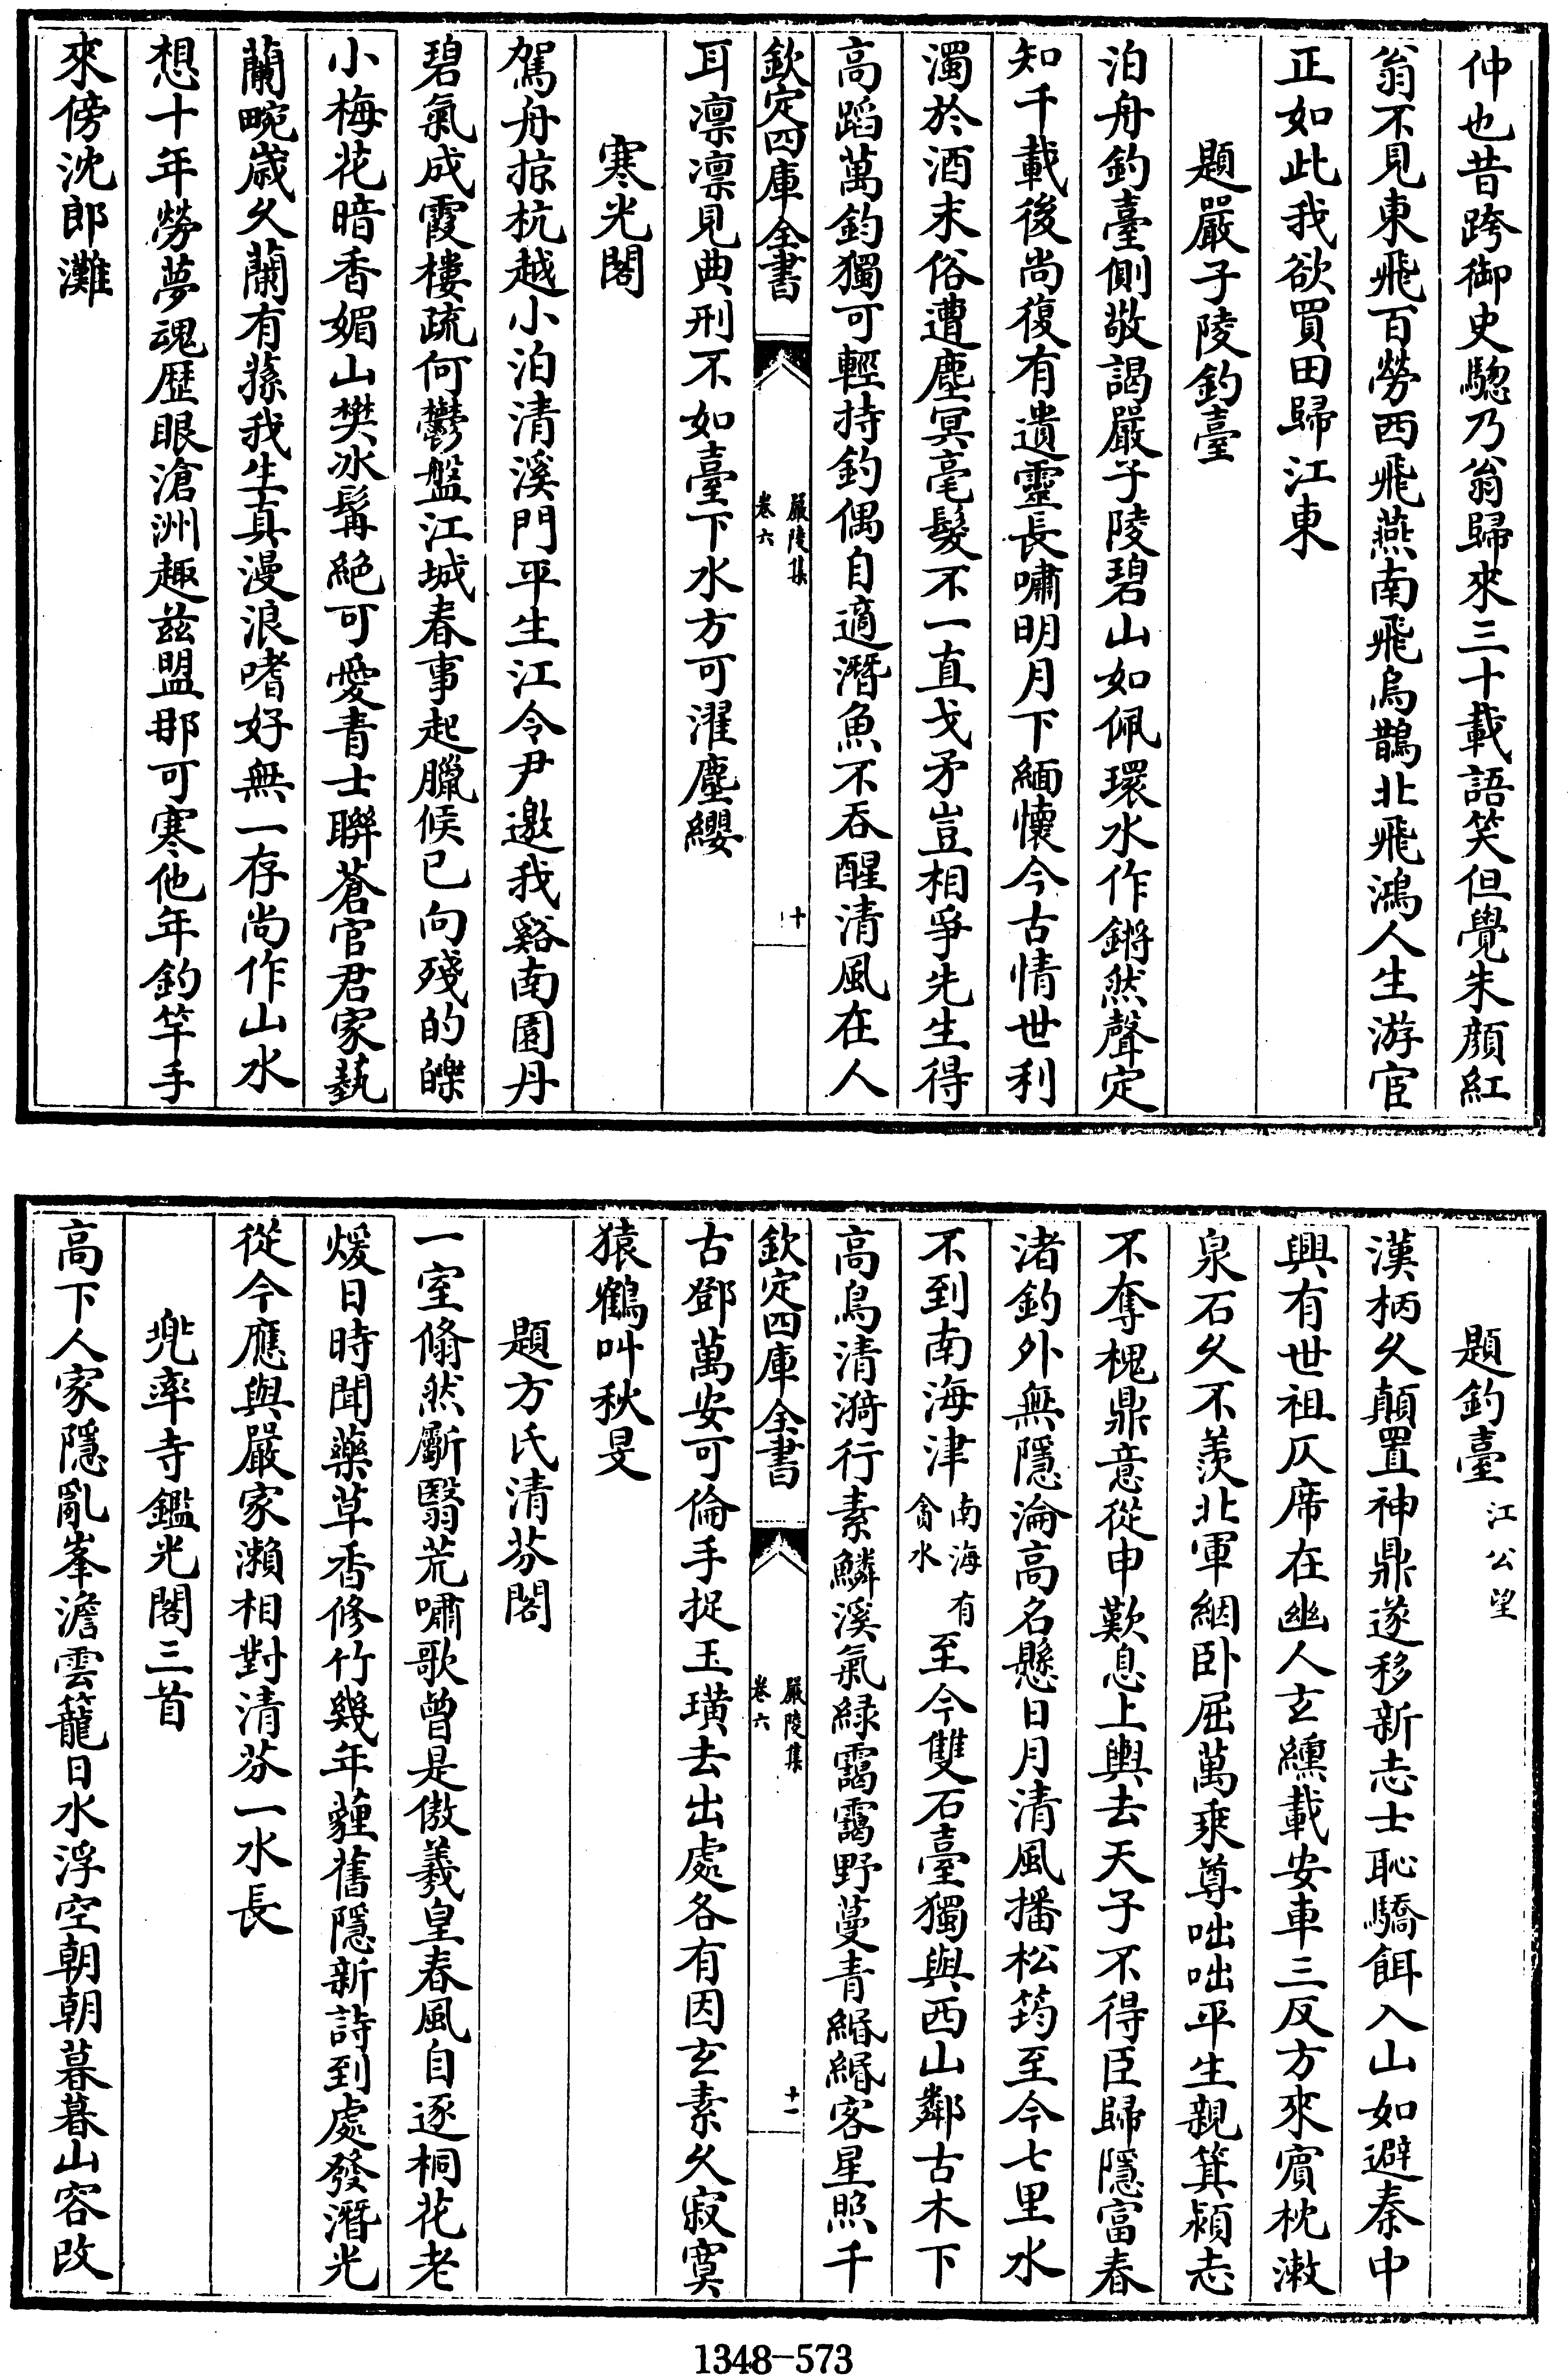 仲也昔跨御史驄乃翁歸來三十載語笑但覺朱顔紅
翁不見東飛百勞西飛燕南飛烏鵲北飛鴻人生游宦
正如此我欲買田歸江東
題嚴子陵釣臺
泊舟釣臺側敬謁嚴子陵碧山如佩環水作鏘然聲定
知千載後尚復有遺靈長嘯明月下緬懷今古情世利
濁於酒末俗遭塵冥毫髮不一直戈矛豈相爭先生得
高蹈萬釣獨可輕持釣偶自適潛魚不吞醒清風在人
欽定四庫全書
嚴陵集
卷六
十
耳凛凛見典刑不如臺下水方可濯塵纓
寒光閣
駕舟掠杭越小泊清溪門平生江令尹邀我谿南園丹
碧氣成霞樓疏何鬱盤江城春事起臘候已向殘的皪
小梅花暗香媚山樊冰髯絕可愛青士聯蒼官君家蓺
蘭畹歲久蘭有蓀我生真漫浪嗜好無一存尚作山水
想十年勞夢魂歴眼滄洲趣兹盟那可寒他年釣竿手
來傍沈郎灘
題釣臺
江公望
漢柄久顛置神鼎遂移新志士恥驕餌入山如避秦中
興有世祖仄席在幽人玄纁載安車三反方來賔枕漱
泉石久不羨北軍綑卧屈萬乘尊咄咄平生親箕潁志
不奪槐鼎意從申歎息上輿去天子不得臣歸隱富春
渚釣外無隱淪高名懸日月清風播松筠至今七里水
不到南海津
南海有
貪水
至今雙石臺獨與西山鄰古木下
高鳥清漪行素鱗溪氣緑靄靄野蔓青緡緡客星照千
欽定四庫全書
嚴陵集
卷六
十一
古鄧萬安可倫手捉玉璜去出處各有因玄素久寂寞
猿鶴叫秋旻
題方氏清芬閣
一室翛然斸翳荒嘯歌曾是傲羲皇春風自逐桐花老
煖日時聞藥草香修竹幾年薶舊隱新詩到處發潛光
從今應與嚴家瀨相對清芬一水長
兠率寺鑑光閣三首
高下人家隱亂峯澹雲籠日水浮空朝朝暮暮山容改
1348-573